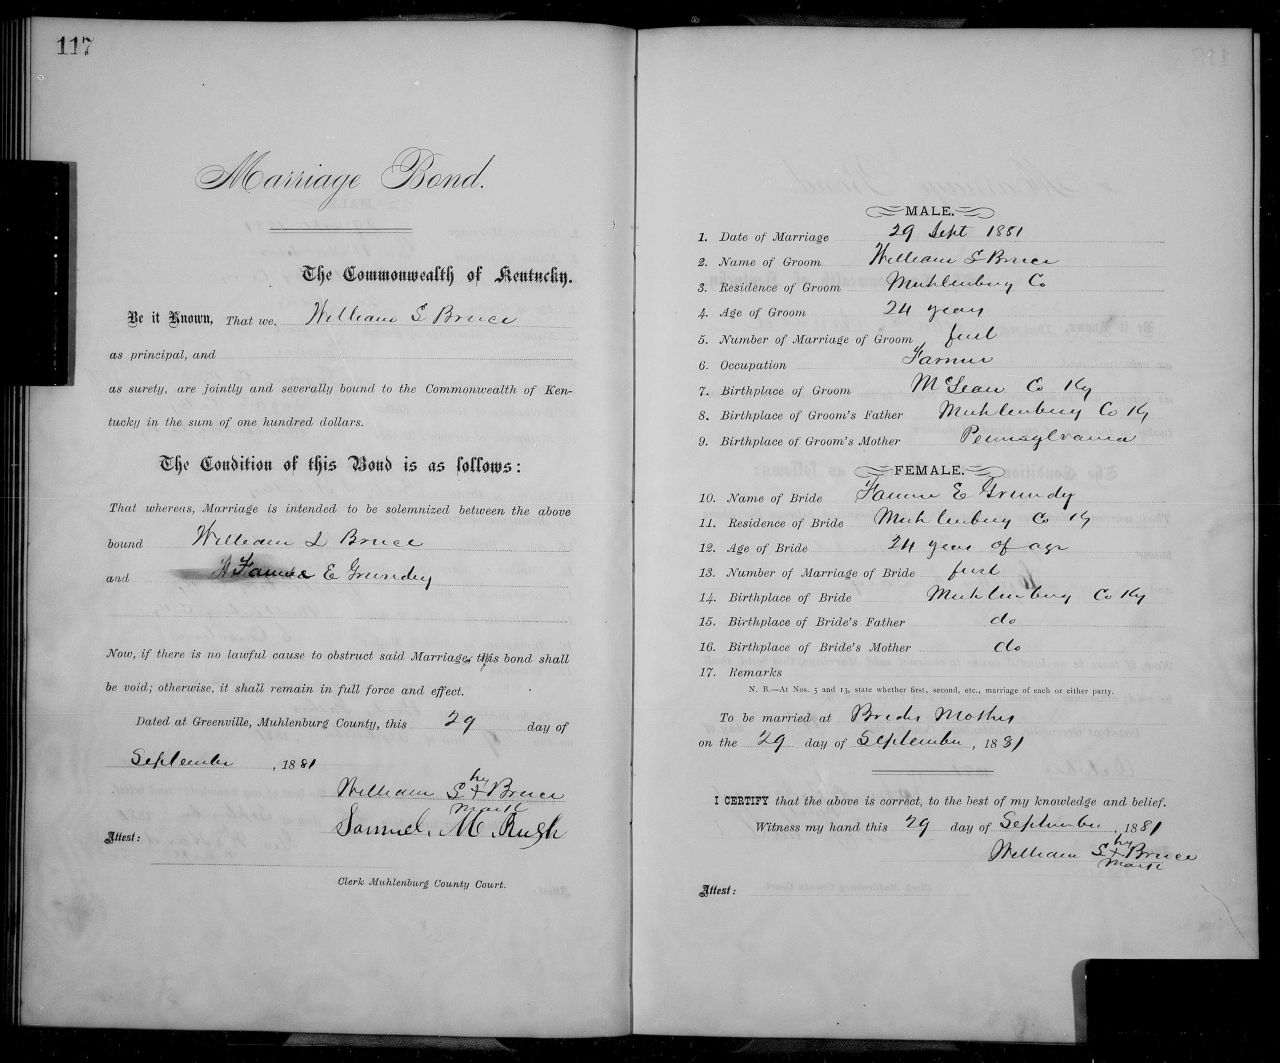 117
Marriage Bond.
The Commonwealth of Kentucky.
Be it Known, That we, William S Bruce
as principal, and
as surety, are jointly and severally bound to the Commonwealth of Ken-
tucky in the sum of one hundred dollars.
The Condition of this Bond is as follows:
That whereas, Marriage is intended to be solemnized between the above
bound William S Bruce
and Fannie E Grundy
Now, if there is no lawful cause to obstruct said Marriage, this bond shall
be void; otherwise, it shall remain in full force and effect.
Dated at Greenville, Muhlenburg County, this 29 day of
September, 1881
his
William S + Bruce
mark
Samuel. M. Rush
Attest:
Clerk Muhlenburg County Court.
MALE.
1. Date of Marriage 29 Sept 1881
2. Name of Groom William S Bruce
3. Residence of Groom Muhlenburg Co
4. Age of Groom 24 years
5. Number of Marriage of Groom first
6. Occupation Farmer
7. Birthplace of Groom McLean Co Ky
8. Birthplace of Groom's Father Muhlenburg Co Ky
9. Birthplace of Groom's Mother Pennsylvania
FEMALE.
10. Name of Bride Fannie E Grundy
11. Residence of Bride Muhlenburg Co Ky
12. Age of Bride 24 years of age
13. Number of Marriage of Bride first
14. Birthplace of Bride Muhlenburg Co Ky
15. Birthplace of Bride's Father do
16. Birthplace of Bride's Mother do
17. Remarks
N. B.—At Nos. 5 and 13, state whether first, second, etc., marriage of each or either party.
To be married at Brides Mother
on the 29 day of September, 1881
I CERTIFY that the above is correct, to the best of my knowledge and belief.
Witness my hand this 29 day of September, 1881
his
William S + Bruce
mark
Attest: